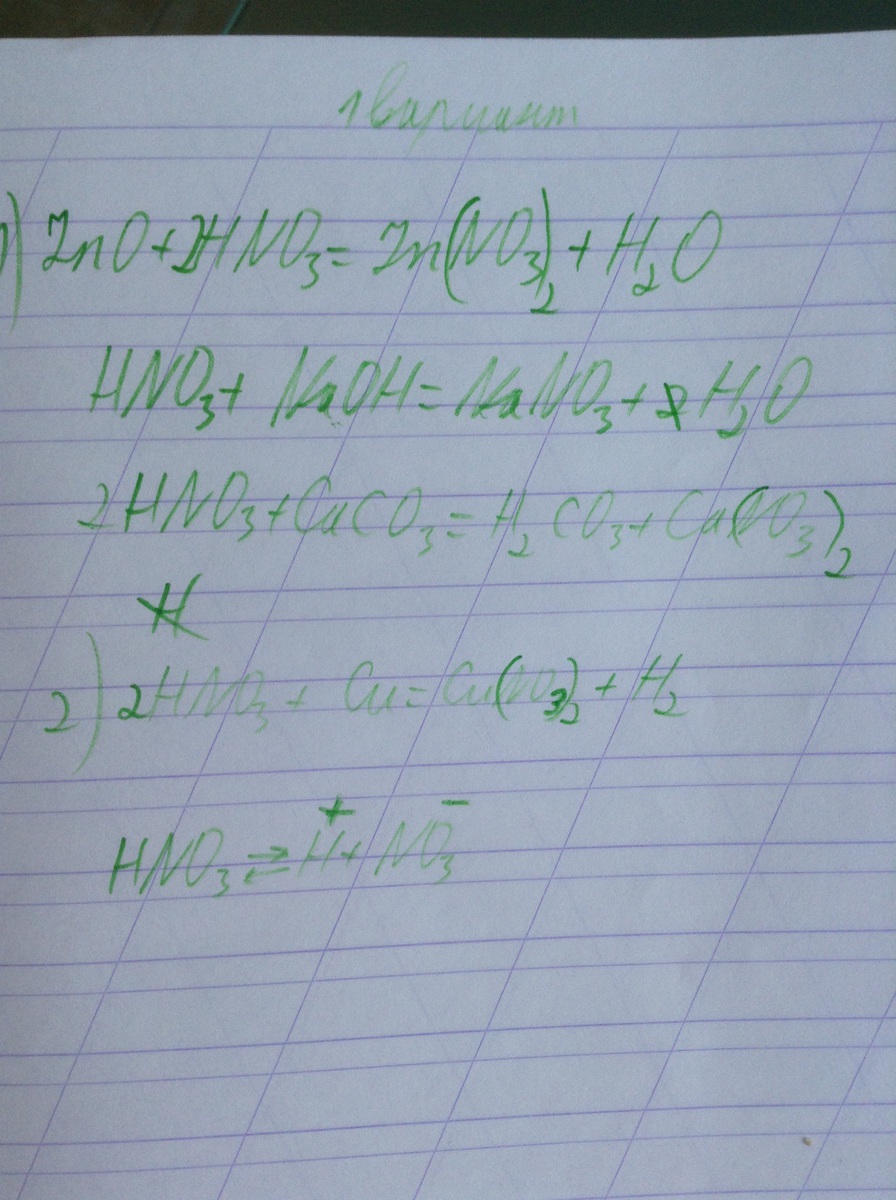 1 вариант
1) ZnO + 2HNO₃ = Zn(NO₃)₂ + H₂O
HNO₃ + NaOH = NaNO₃ + H₂O
2HNO₃ + CaCO₃ = H₂CO₃ + Ca(NO₃)₂
2) 2HNO₃ + Cu = Cu(NO₃)₂ + H₂
HNO₃ ⇄ H⁺ + NO₃⁻